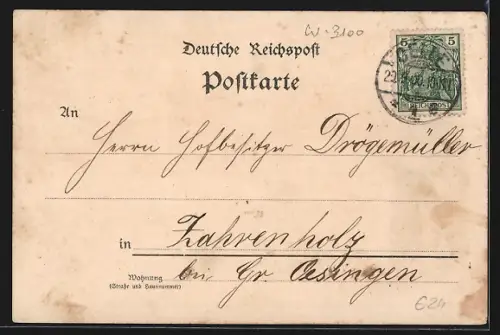 W-3100
Deutsche Reichspost
Postkarte
5 5
CELLE
An
Herrn Hofbesitzer Drögemüller
in Zahrenholz
Wohnung
(Straße und Hausnummer)
bei Gr. Oesingen